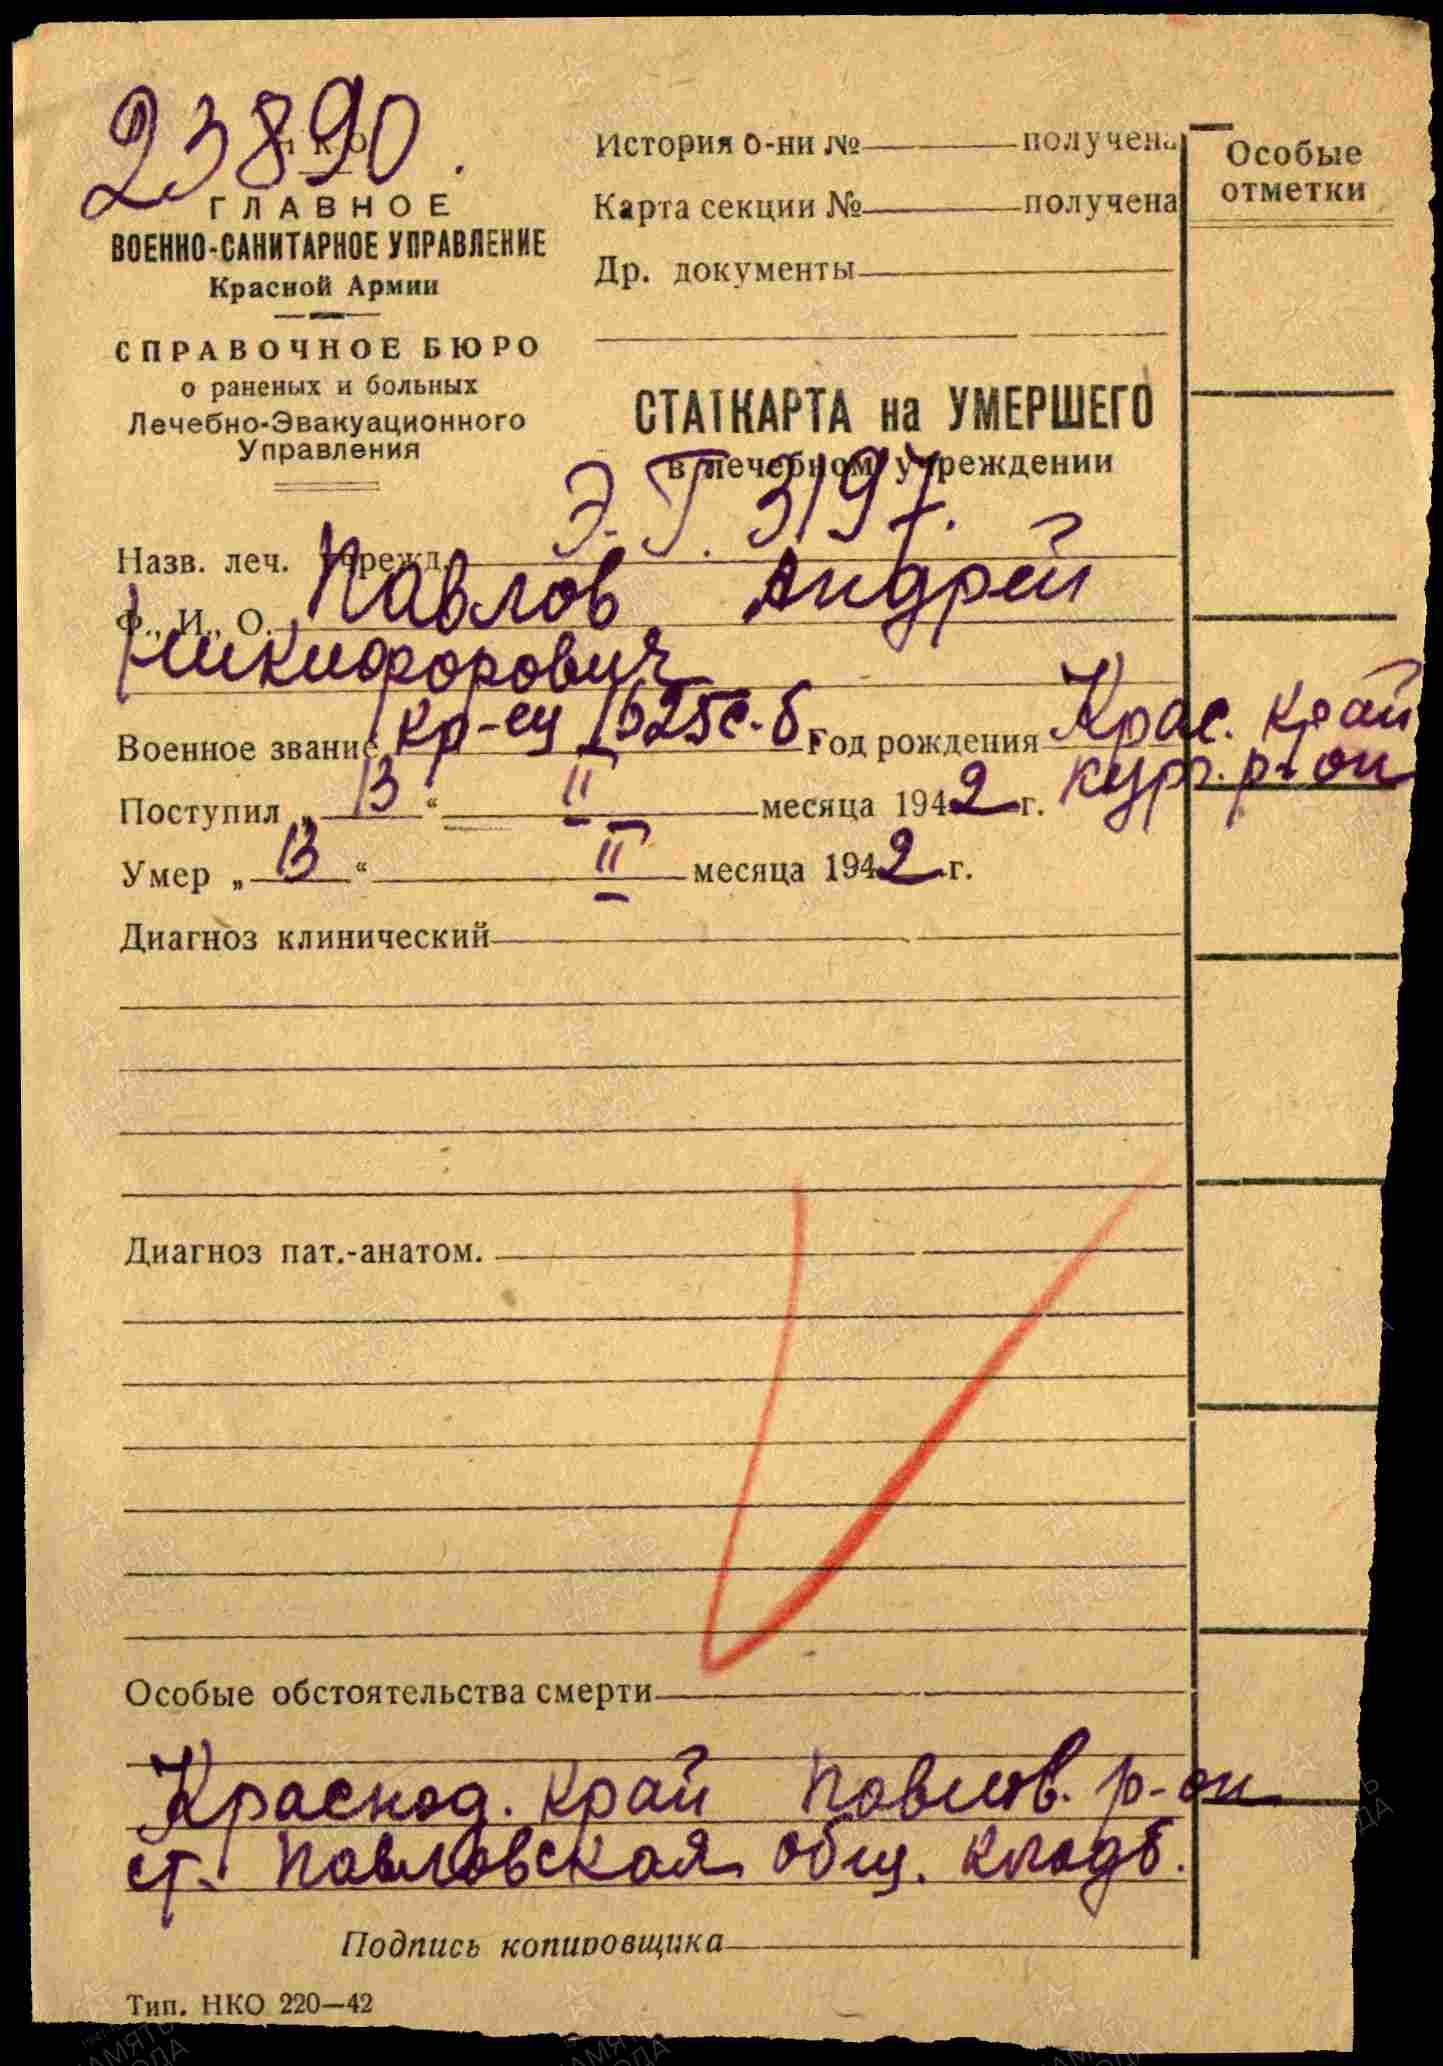 23890.
НКО
ГЛАВНОЕ
ВОЕННО-САНИТАРНОЕ УПРАВЛЕНИЕ
Красной Армии
СПРАВОЧНОЕ БЮРО
о раненых и больных
Лечебно-Эвакуационного
Управления
История б-ни № получена
Карта секции № получена
Др. документы
Особые
отметки
СТАТКАРТА на УМЕРШЕГО
в лечебном учреждении
Назв. леч. учрежд. Э.Г. 3197.
Ф., И., О. Павлов Андрей
Никифорович
Военное звание кр-ец 1625 с.б Год рождения Крас. край
Кург. р-он
Поступил „13“ II месяца 1942 г.
Умер „13“ II месяца 1942 г.
Диагноз клинический
Диагноз пат.-анатом.
Особые обстоятельства смерти
Краснод. край Павлов. р-он
ст. Павловская общ. кладб.
Подпись копировщика
Тип. НКО 220—42
ПАМЯТЬ НАРОДА